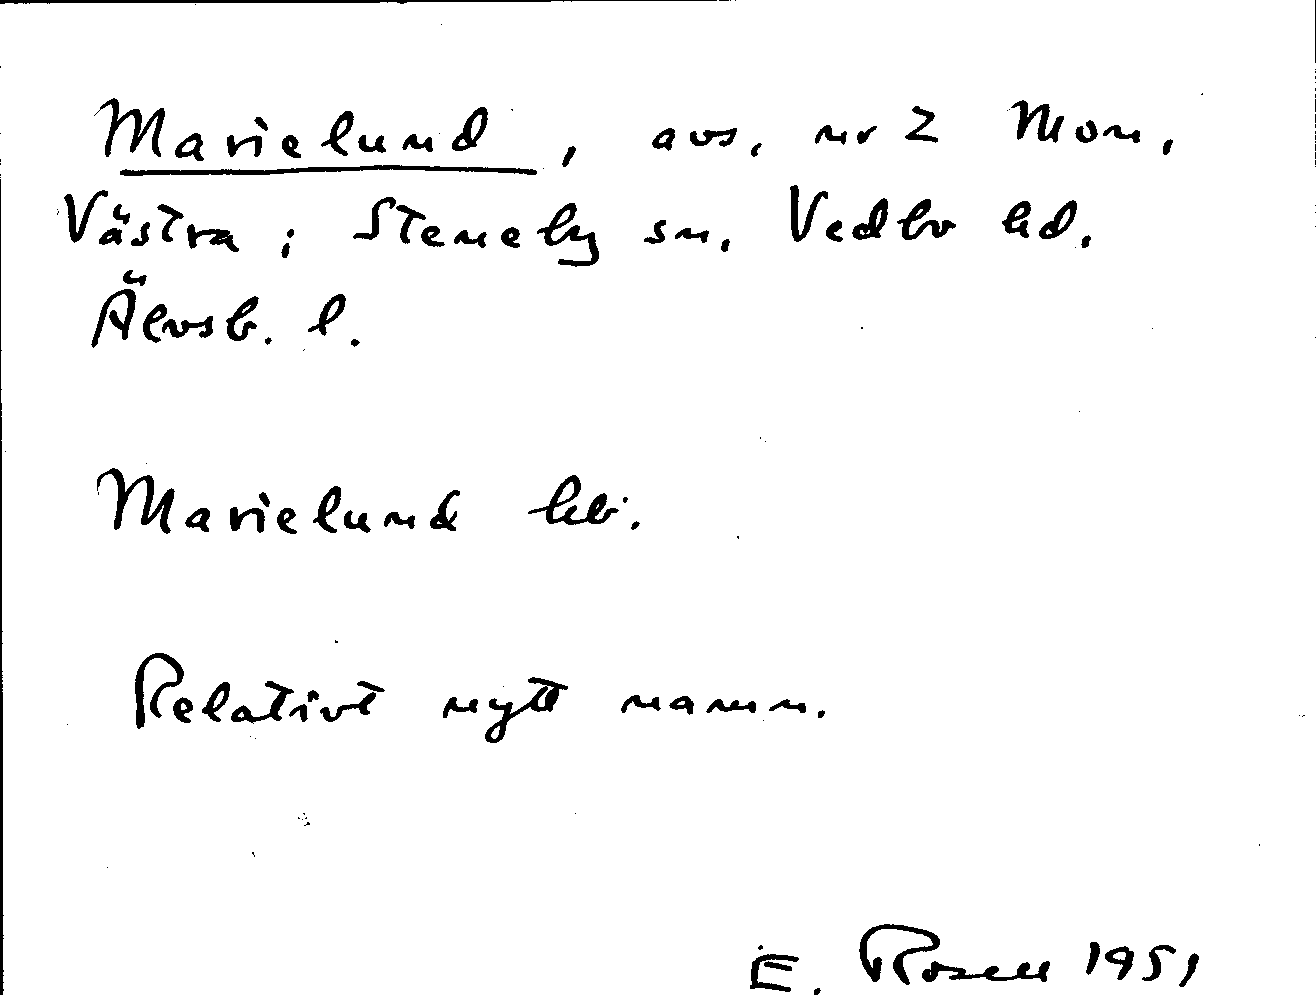 Marielund, avs. nr 2 Mon,
Västra; Steneby sn. Vedbo hd.
Älvsb. l.
Marielund kb.
Relativt nytt namn.
E. Rosell 1951